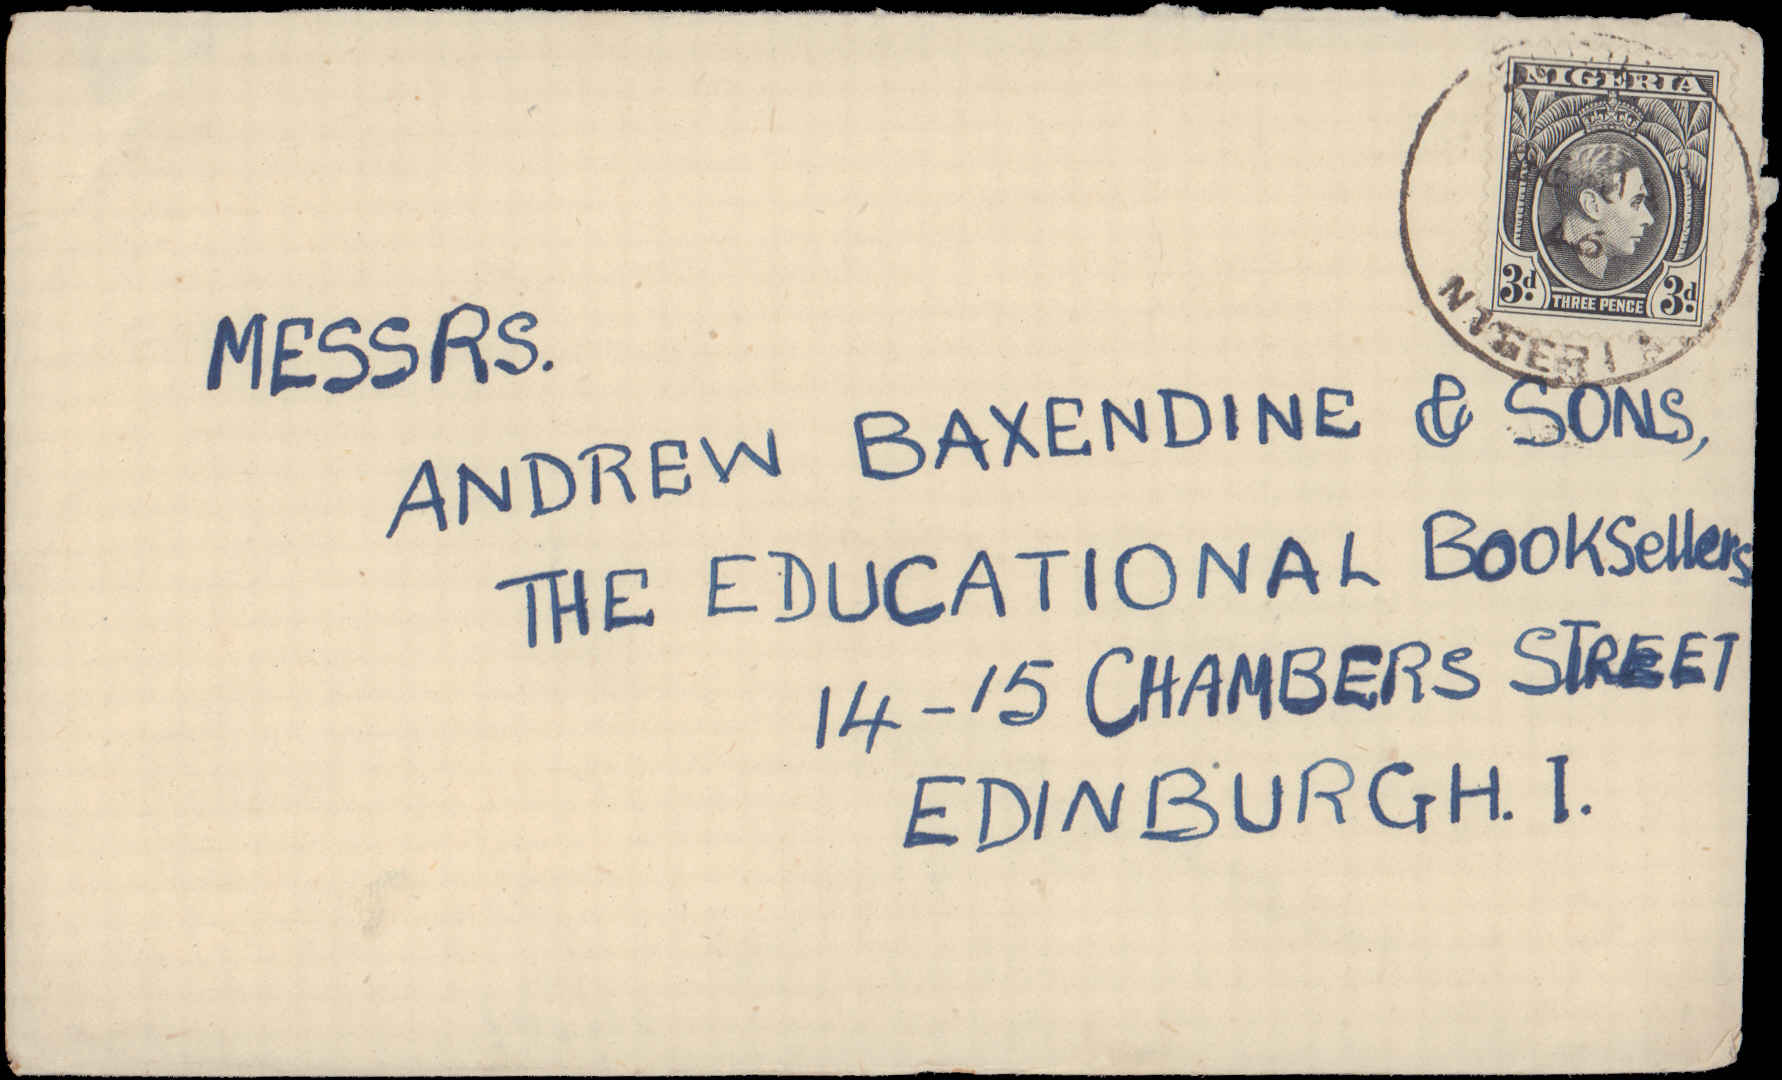 NIGERIA
3d 3d
THREE PENCE
NIGERIA
MESSRS.
ANDREW BAXENDINE & SONS,
THE EDUCATIONAL BookSellers
14-15 CHAMBERS STREET
EDINBURGH. I.